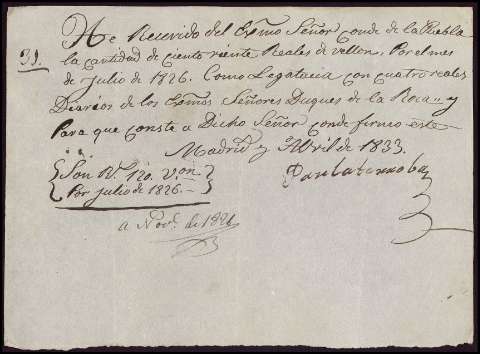 He Recevido del Exmo Señor Conde de la Puebla
31. la cantidad de ciento veinte Reales de vellon, Por el mes
de Julio de 1826. Como Legataria con cuatro reales
Diarios de los Exmos Señores Duques de la Roca = y
Para que conste a Dicho Señor conde firmo este
Madrid y Abril de 1833.
Son Rs. 120. von.
Por julio de 1826.
a Nove. de 1826